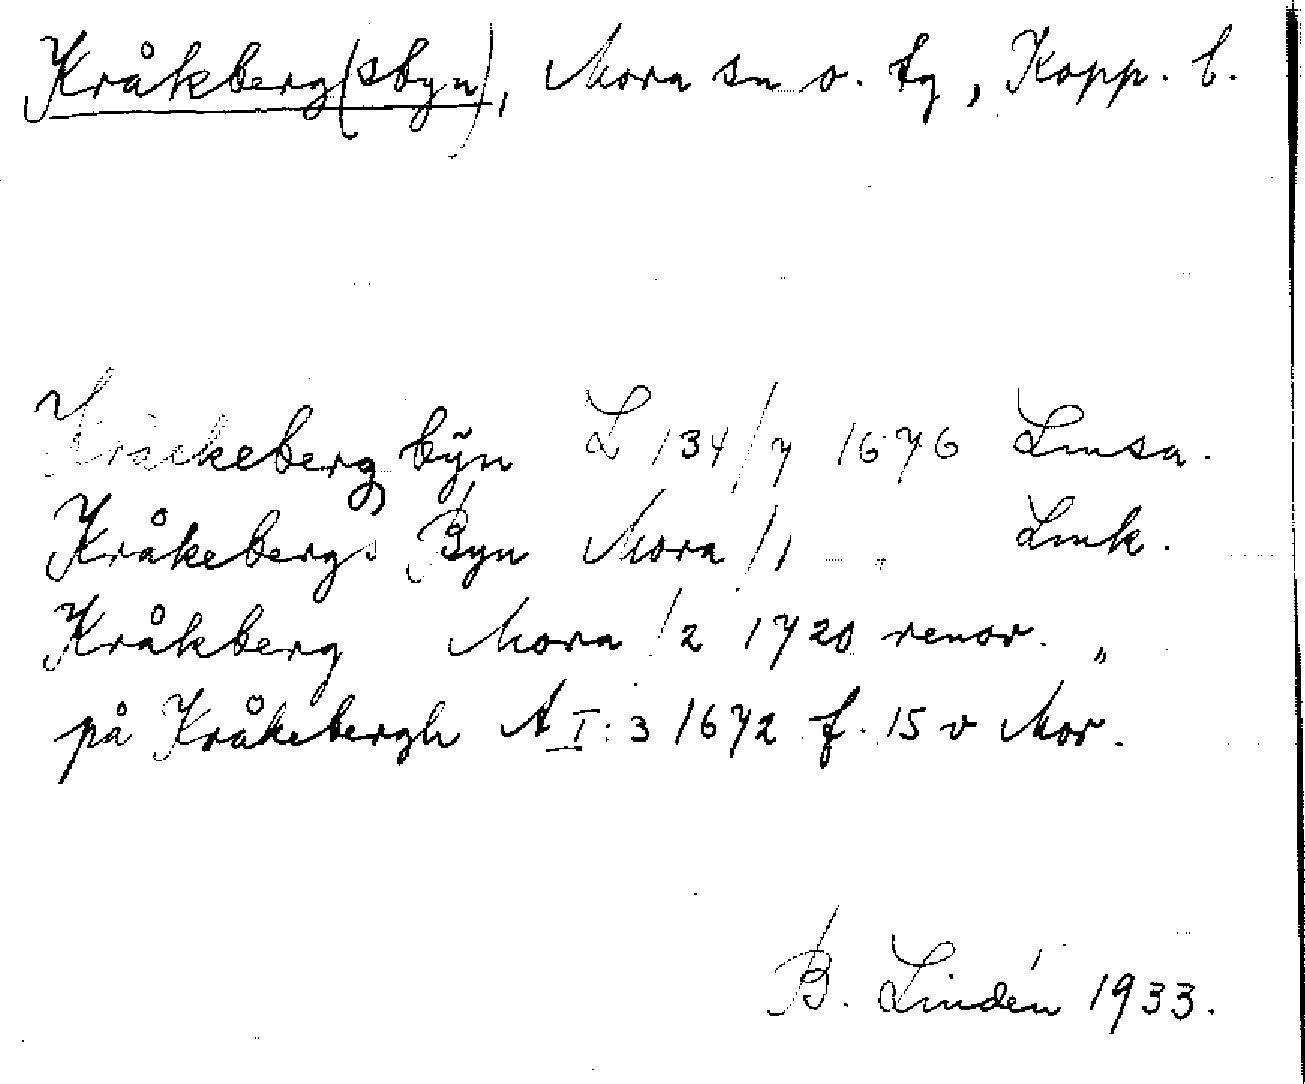 Kråkberg(sbyn), Mora sn o. tg, Kopp. l.
Kråckeberg bÿn L 134/7 1676 Lmsa.
Kråkebergs Byn Mora /1 — „ Lmk.
Kråkberg Mora /2 1720 renov. „
på Kråkebergh A I:3 1672 f. 15 v Mor.
B. Lindén 1933.